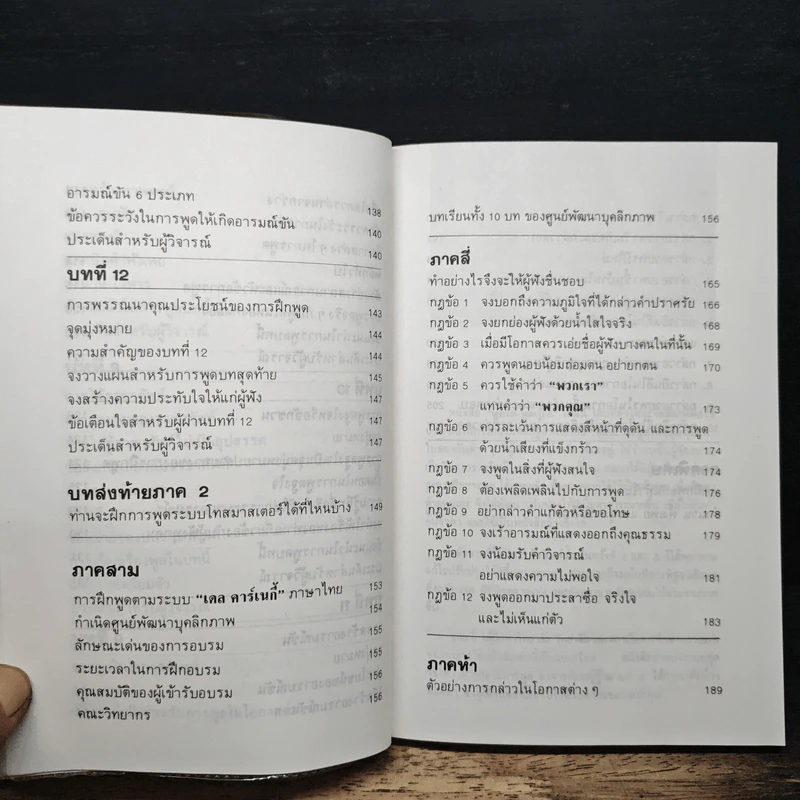 อารมณ์ขัน 6 ประเภท 138
ข้อควรระวังในการพูดให้เกิดอารมณ์ขัน 140
ประเด็นสำหรับผู้วิจารณ์ 140
บทที่ 12
การพรรณนาคุณประโยชน์ของการฝึกพูด 143
จุดมุ่งหมาย 144
ความสำคัญของบทที่ 12 144
จงวางแผนสำหรับการพูดบทสุดท้าย 145
จงสร้างความประทับใจให้แก่ผู้ฟัง 147
ข้อเตือนใจสำหรับผู้ผ่านบทที่ 12 147
ประเด็นสำหรับผู้วิจารณ์ 147
บทส่งท้ายภาค 2
ท่านจะฝึกการพูดระบบโทสมาสเตอร์ได้ที่ไหนบ้าง 149
ภาคสาม
การฝึกพูดตามระบบ “เดล คาร์เนกี้” ภาษาไทย 153
กำเนิดศูนย์พัฒนาบุคลิกภาพ 154
ลักษณะเด่นของการอบรม 155
ระยะเวลาในการฝึกอบรม 155
คุณสมบัติของผู้เข้ารับอบรม 156
คณะวิทยากร 156
บทเรียนทั้ง 10 บท ของศูนย์พัฒนาบุคลิกภาพ 156
ภาคสี่
ทำอย่างไรจึงจะให้ผู้ฟังชื่นชอบ 165
กฎข้อ 1 จงบอกถึงความภูมิใจที่ได้กล่าวคำปราศรัย 166
กฎข้อ 2 จงยกย่องผู้ฟังด้วยน้ำใสใจจริง 168
กฎข้อ 3 เมื่อมีโอกาสควรเอ่ยชื่อผู้ฟังบางคนในที่นั้น 169
กฎข้อ 4 ควรพูดนอบน้อมถ่อมตน อย่ายกตน 170
กฎข้อ 5 ควรใช้คำว่า “พวกเรา”
แทนคำว่า “พวกคุณ” 173
กฎข้อ 6 ควรละเว้นการแสดงสีหน้าที่ดุดัน และการพูด
ด้วยน้ำเสียงที่แข็งกร้าว 174
กฎข้อ 7 จงพูดในสิ่งที่ผู้ฟังสนใจ 174
กฎข้อ 8 ต้องเพลิดเพลินไปกับการพูด 176
กฎข้อ 9 อย่ากล่าวคำแก้ตัวหรือขอโทษ 178
กฎข้อ 10 จงเร้าอารมณ์ที่แสดงออกถึงคุณธรรม 179
กฎข้อ 11 จงน้อมรับคำวิจารณ์
อย่าแสดงความไม่พอใจ 181
กฎข้อ 12 จงพูดออกมาประสาซื่อ จริงใจ
และไม่เห็นแก่ตัว 183
ภาคห้า
ตัวอย่างการกล่าวในโอกาสต่าง ๆ 189